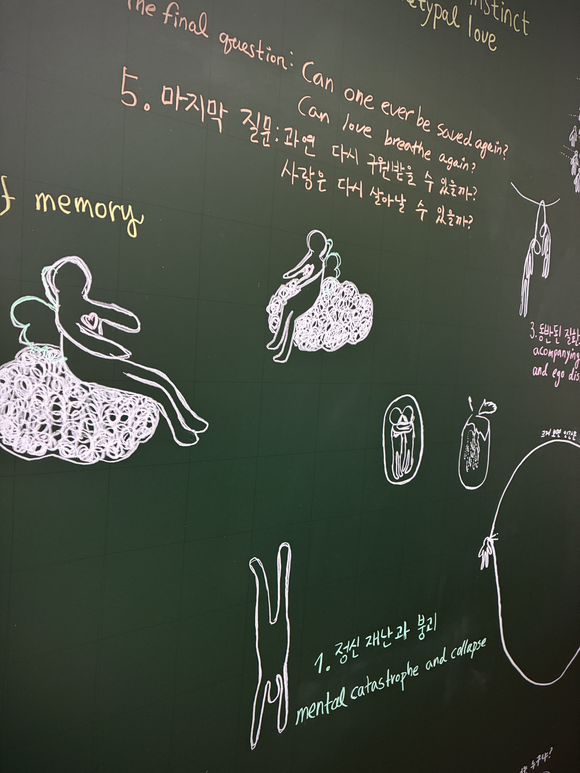 instinct
love
The final question: Can one ever be saved again?
Can love breathe again?
5. 마지막 질문: 과연 다시 구원받을 수 있을까?
사랑은 다시 살아날 수 있을까?
f memory
3. 동반된
acompanying
and ego dis
1. 정신 재난과 붕괴
mental catastrophe and collapse